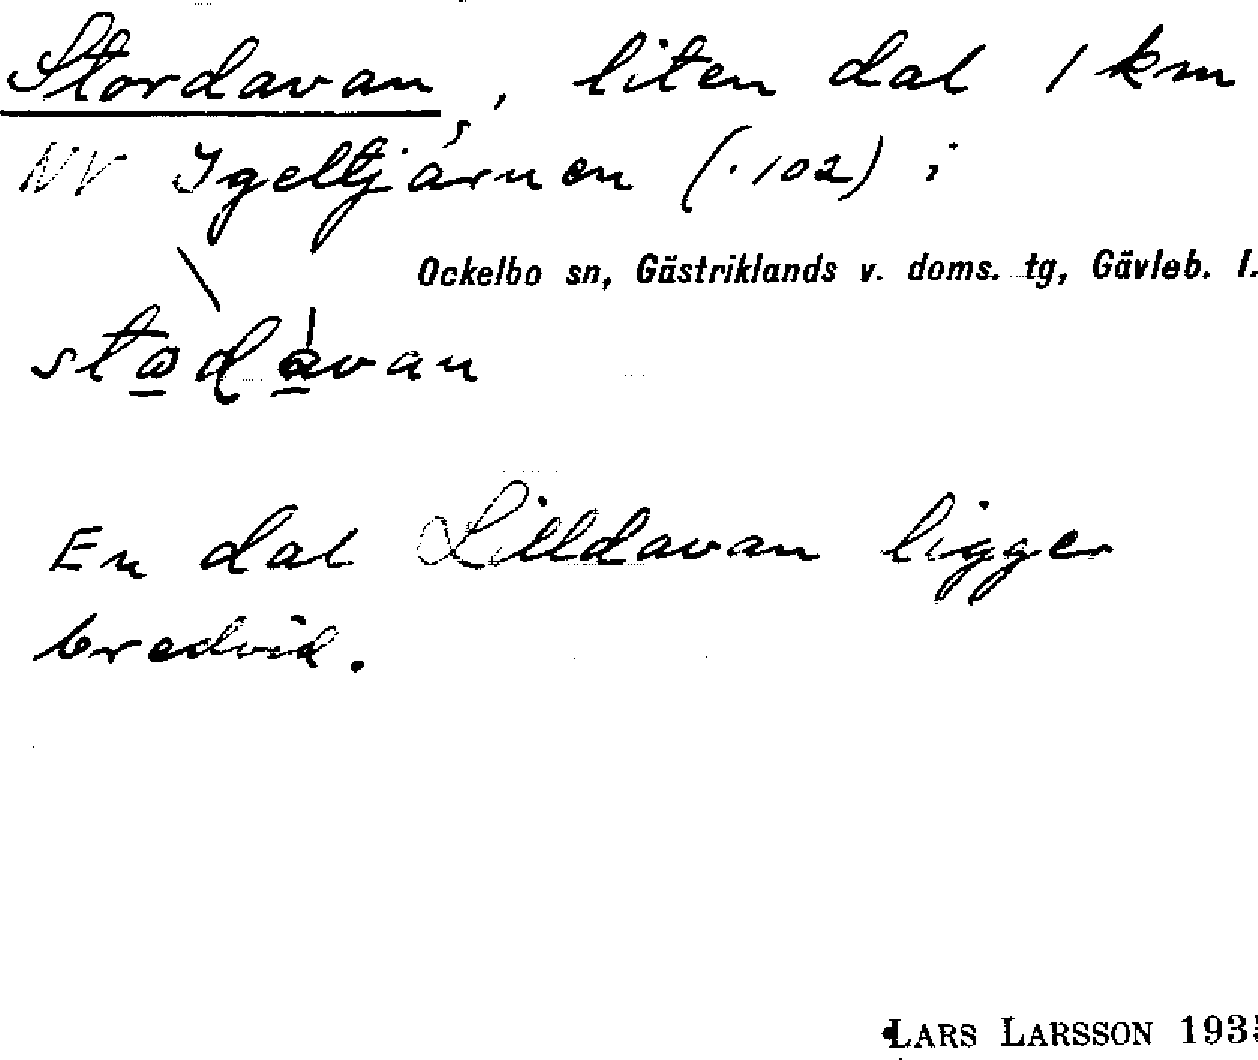 Stordavan, liten dal 1 km
NV Igeltjärnen (.102) i
Ockelbo sn, Gästriklands v. doms. tg, Gävleb. l.
En dal Lilldavan ligger
bredvid.
LARS LARSSON